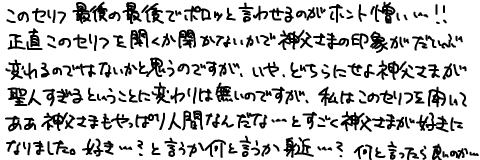 このセリフ最後の最後でポロッと言わせるのがホント憎い…!!
正直このセリフを聞くか聞かないかで神父さまの印象がだいぶ
変わるのではないかと思うのですが、いや、どちらにせよ神父さまが
聖人すぎるということに変わりは無いのですが、私はこのセリフを聞いて
ああ神父さまもやっぱり人間なんだな…とすごく神父さまが好きに
なりました。好き…?と言うか何と言うか身近…?何と言ったら良いのか…